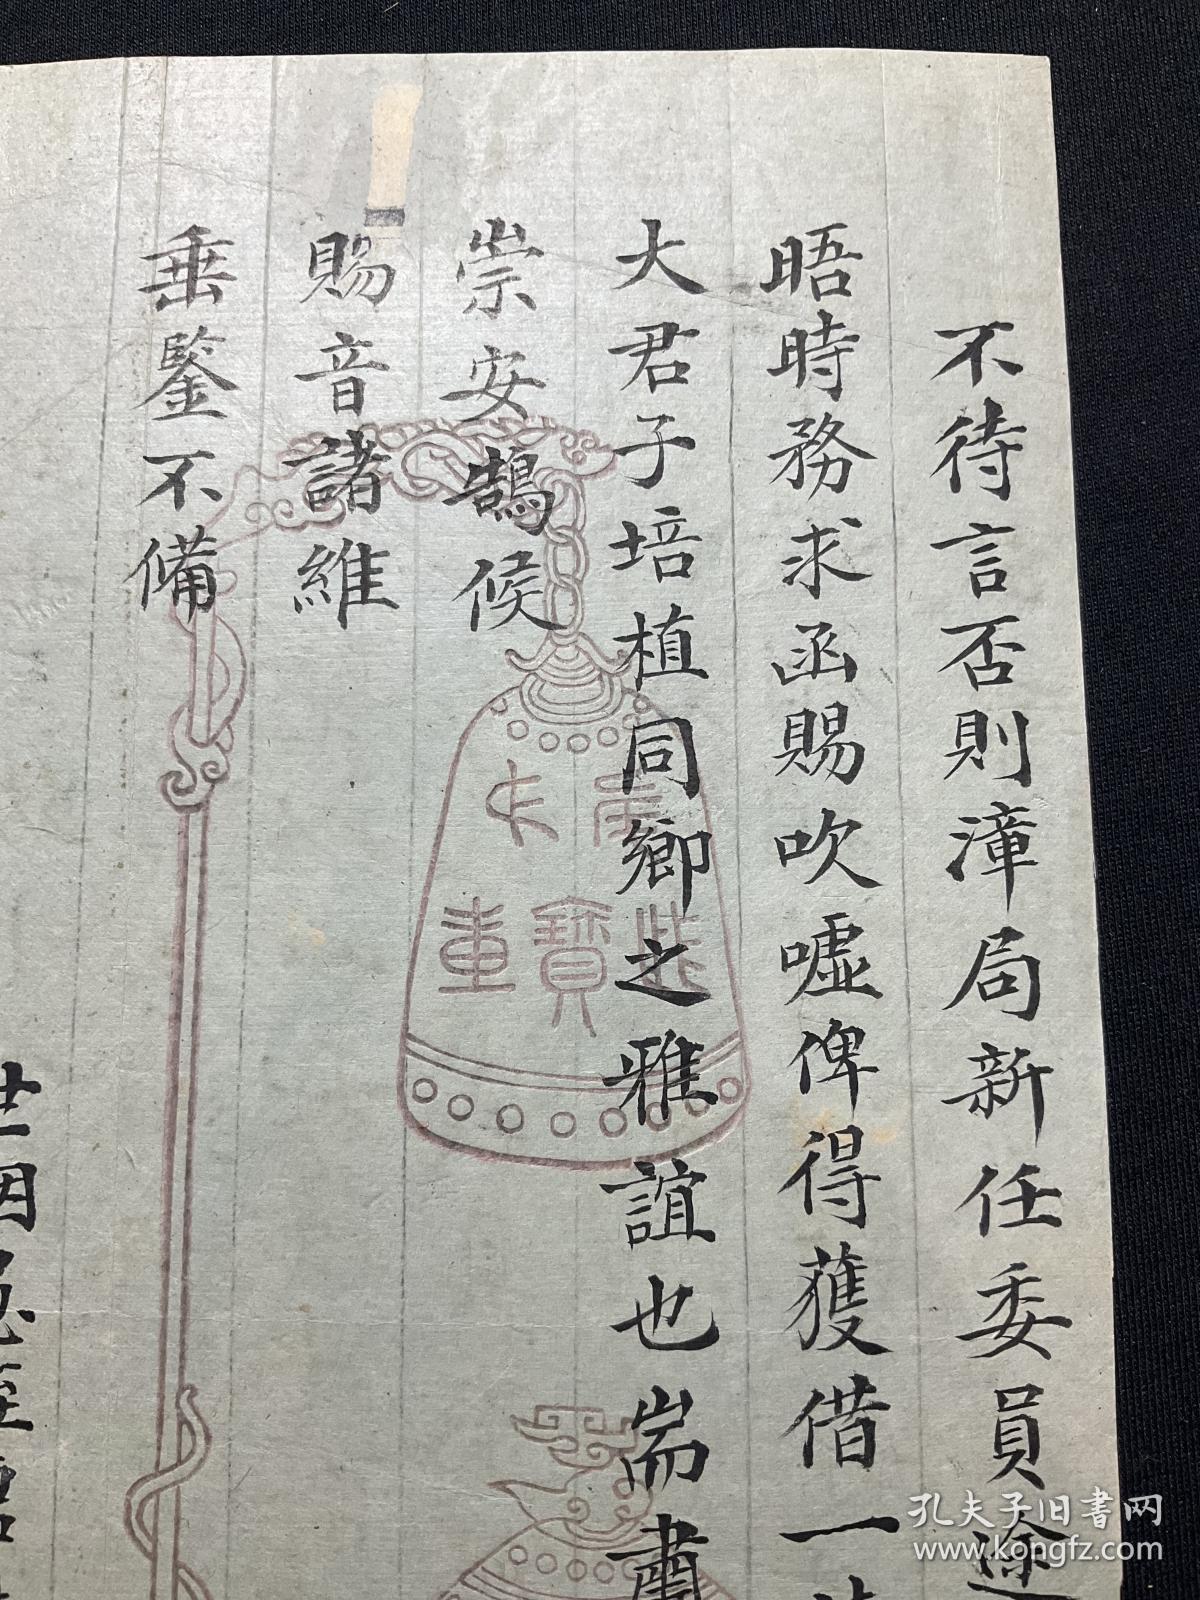 不待言否則漳局新任委員途
晤時務求函賜吹噓俾得獲借一
大君子培植同鄉之雅誼也耑肅
崇安鵠候
賜音諸維
垂鑒不備
重寶
孔夫子旧书网
www.kongfz.com